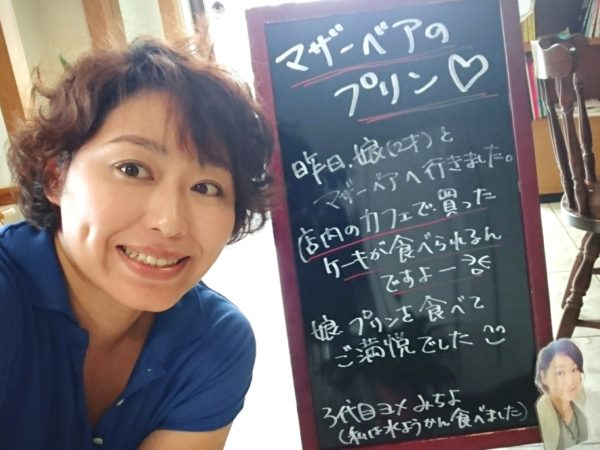 マザーベアの
プリン♡
昨日、娘(2才)と
マザーベアへ行きました。
店内のカフェで、買った
ケーキが食べられるん
ですよー
娘、プリンを食べて
ご満悦でした
3代目ヨメ みちよ
(私は水ようかん食べました)